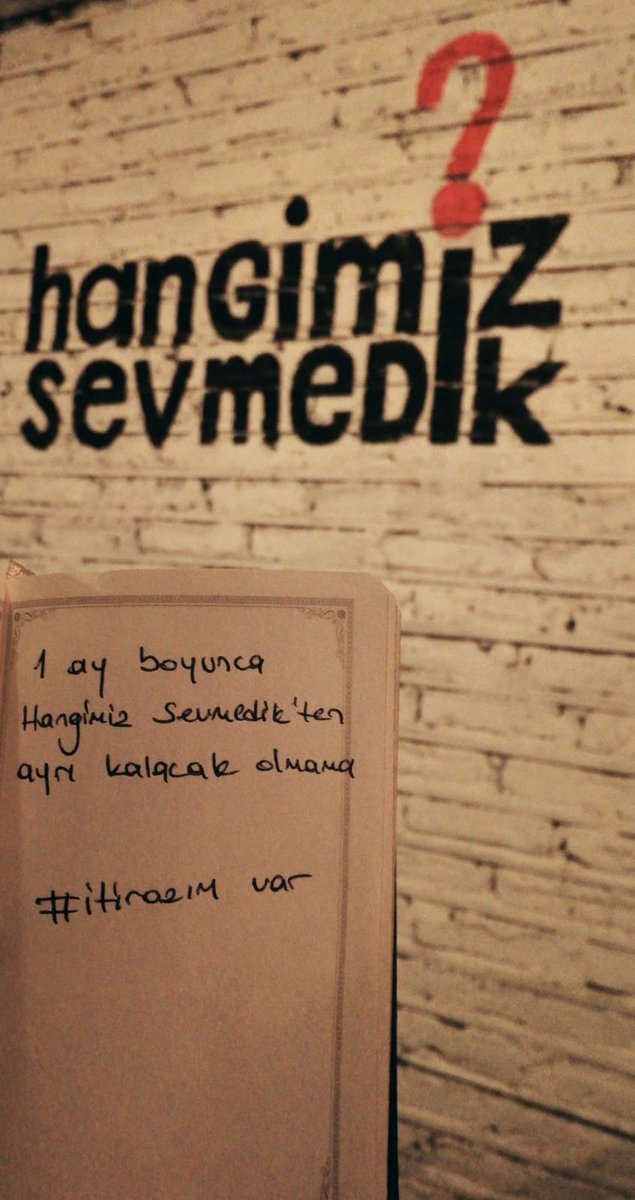 ?
hangimiz
sevmedik
1 ay boyunca
Hangimiz Sevmedik'ten
ayrı kalacak olmama
#itirazım var